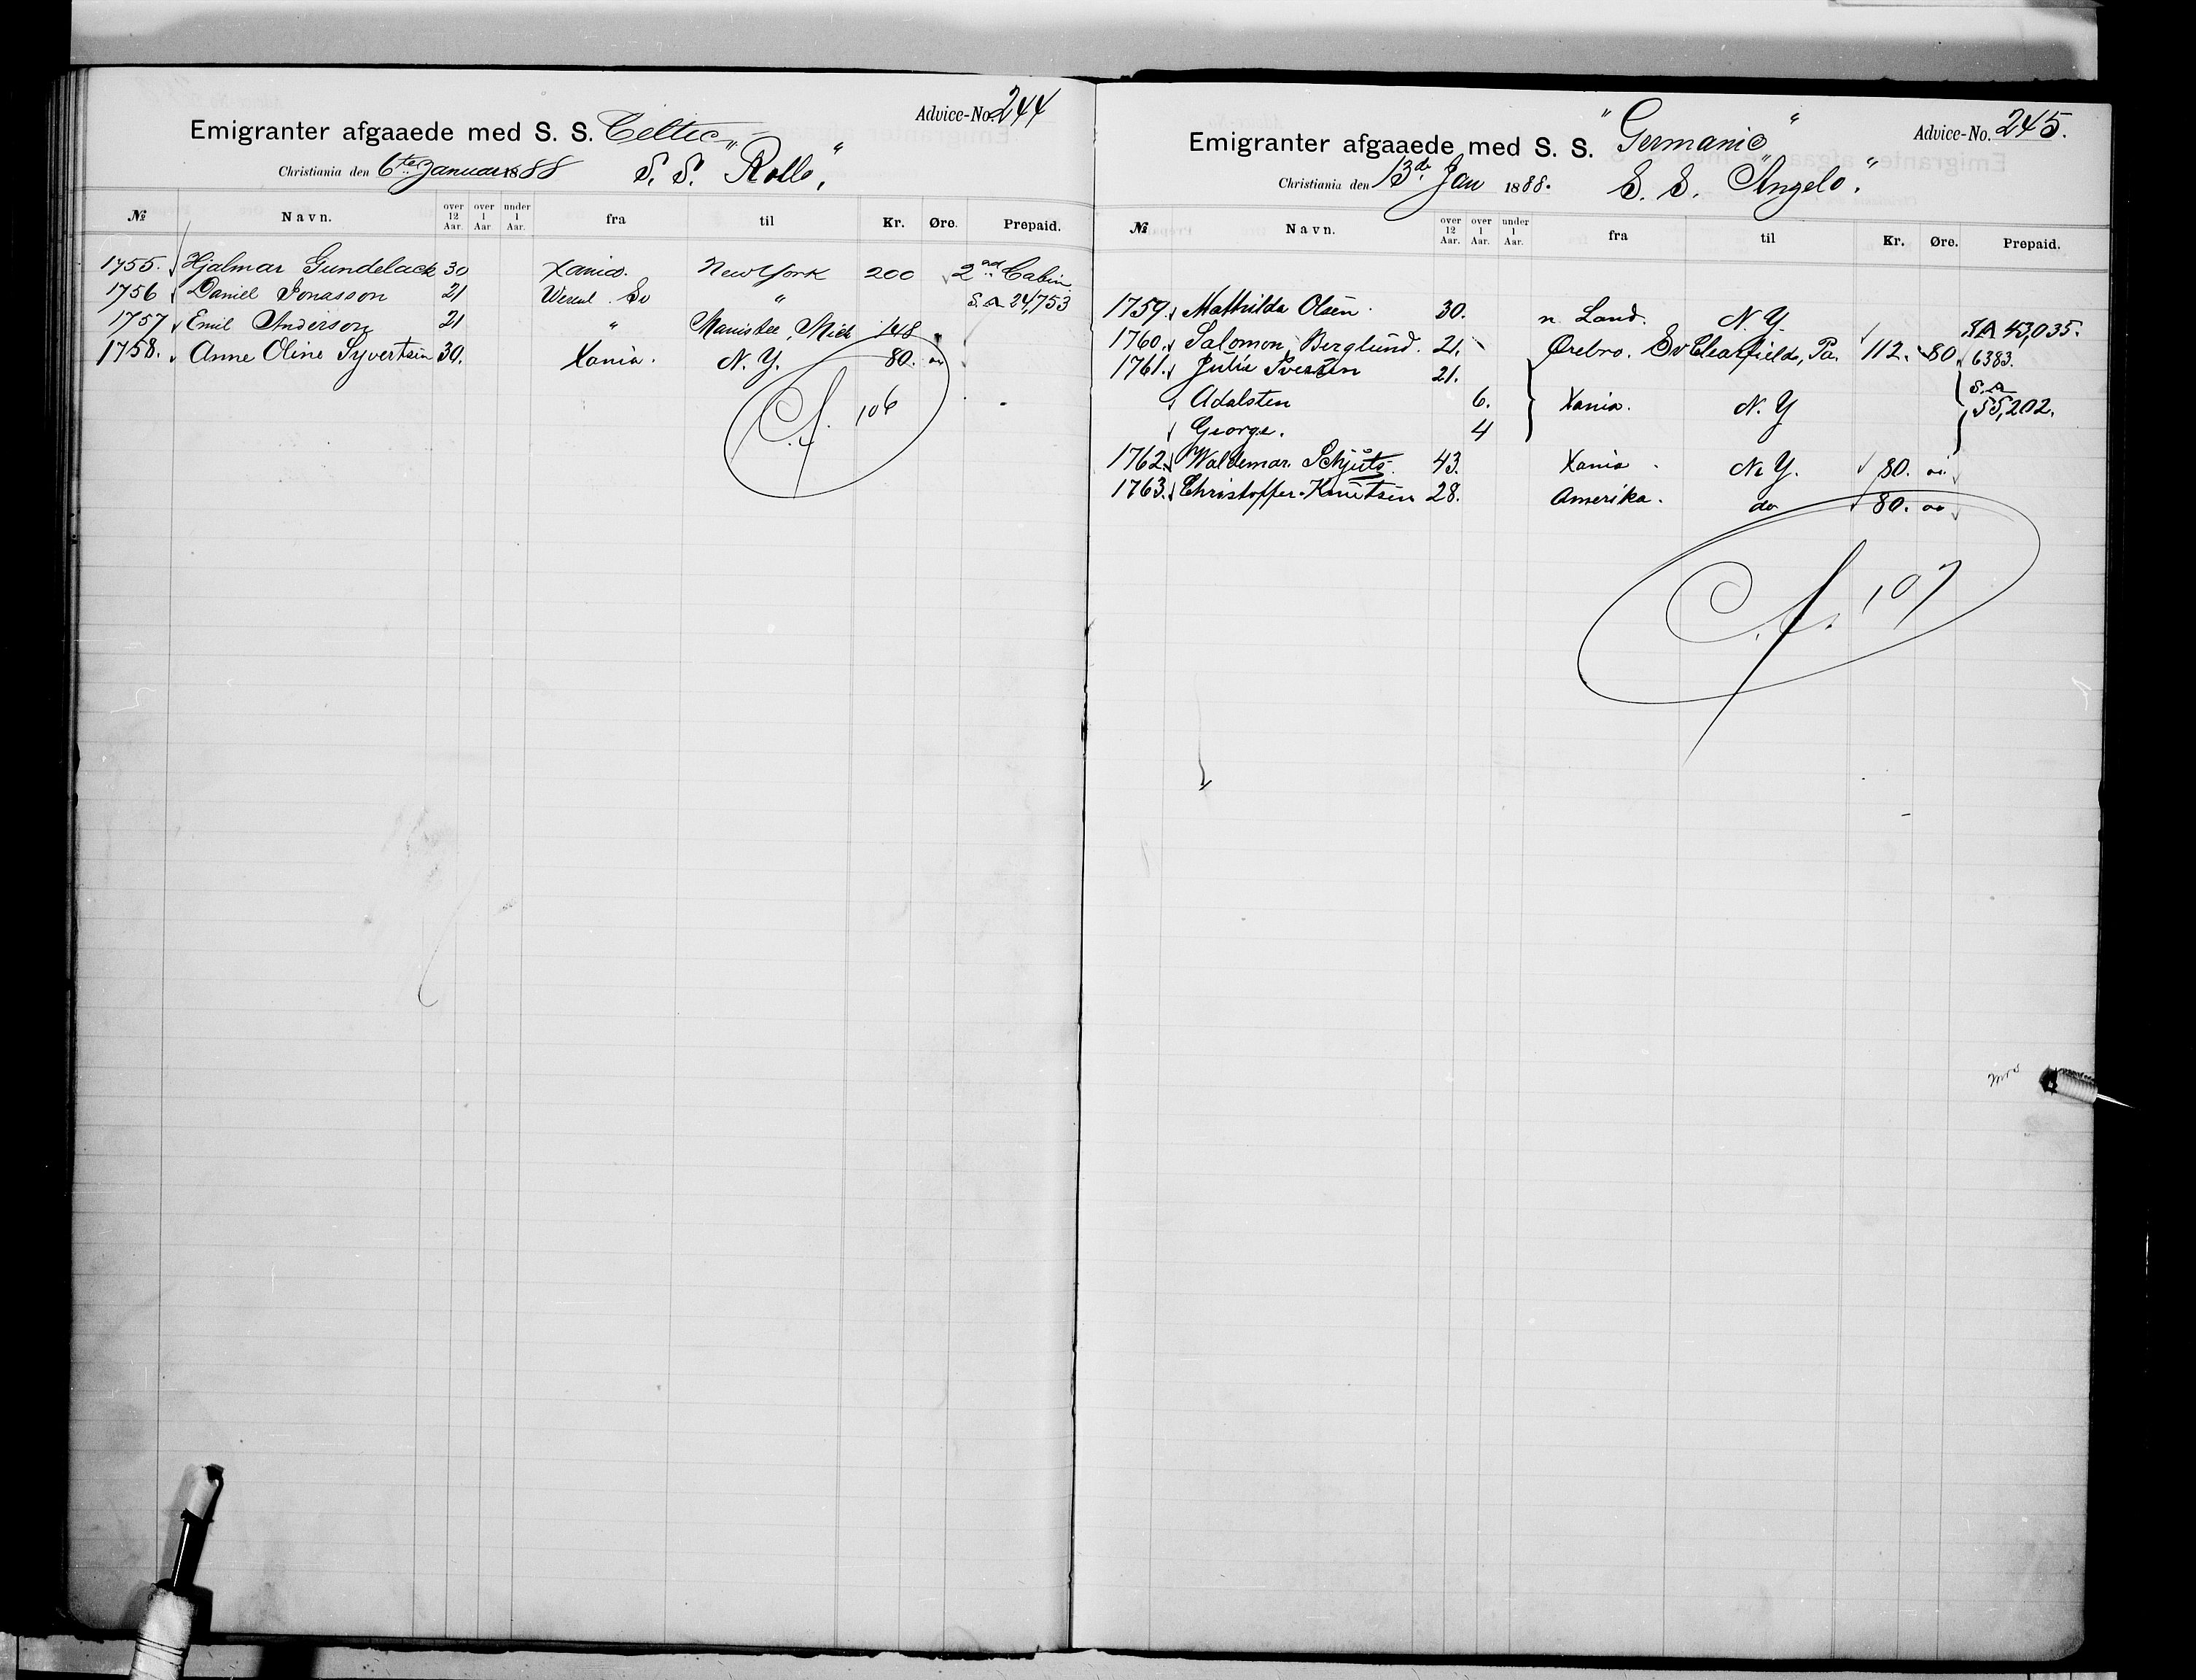 Advice-No. 244
Emigranter afgaaede med S. S. Celtic
Christiania den 6te Januar 1888 S. S. "Rollo"
№ Navn. over 12 Aar. over 1 Aar under 1 Aar. fra til Kr. Øre. Prepaid.
1755. Hjalmar Gundelack 30 Xania. New York 200 2nd Cabin
1756 Daniel Jonasson 21 Sv " S.A 24,753
1757 Emil Anderson 21 " Manistee, Mich 148
1758. Anne Oline Syvertsen 30. Xania. N. Y. 80. oo
Cf. 106
Advice-No. 245.
Emigranter afgaaede med S. S. "Germanic"
Christiania den 13de Jan 1888. S. S. "Angelo".
№ Navn. over 12 Aar. over 1 Aar. under 1 Aar. fra til Kr. Øre. Prepaid.
1759. Mathilda Olsen. 30. n. Land. N. Y. SA 43,035.
1760. Salomon Berglund. 21. Ørebro. Sv Clearfield, Pa. 112. 80 6383.
1761. Julie Iversen 21. S.A
Adalsten 6. Xania. N. Y 55,202.
George. 4
1762. Waldemar 43. Xania N. Y. 80. oo
1763. Christoffer Knutsen 28. Amerika. do 80. oo
Cf. 107